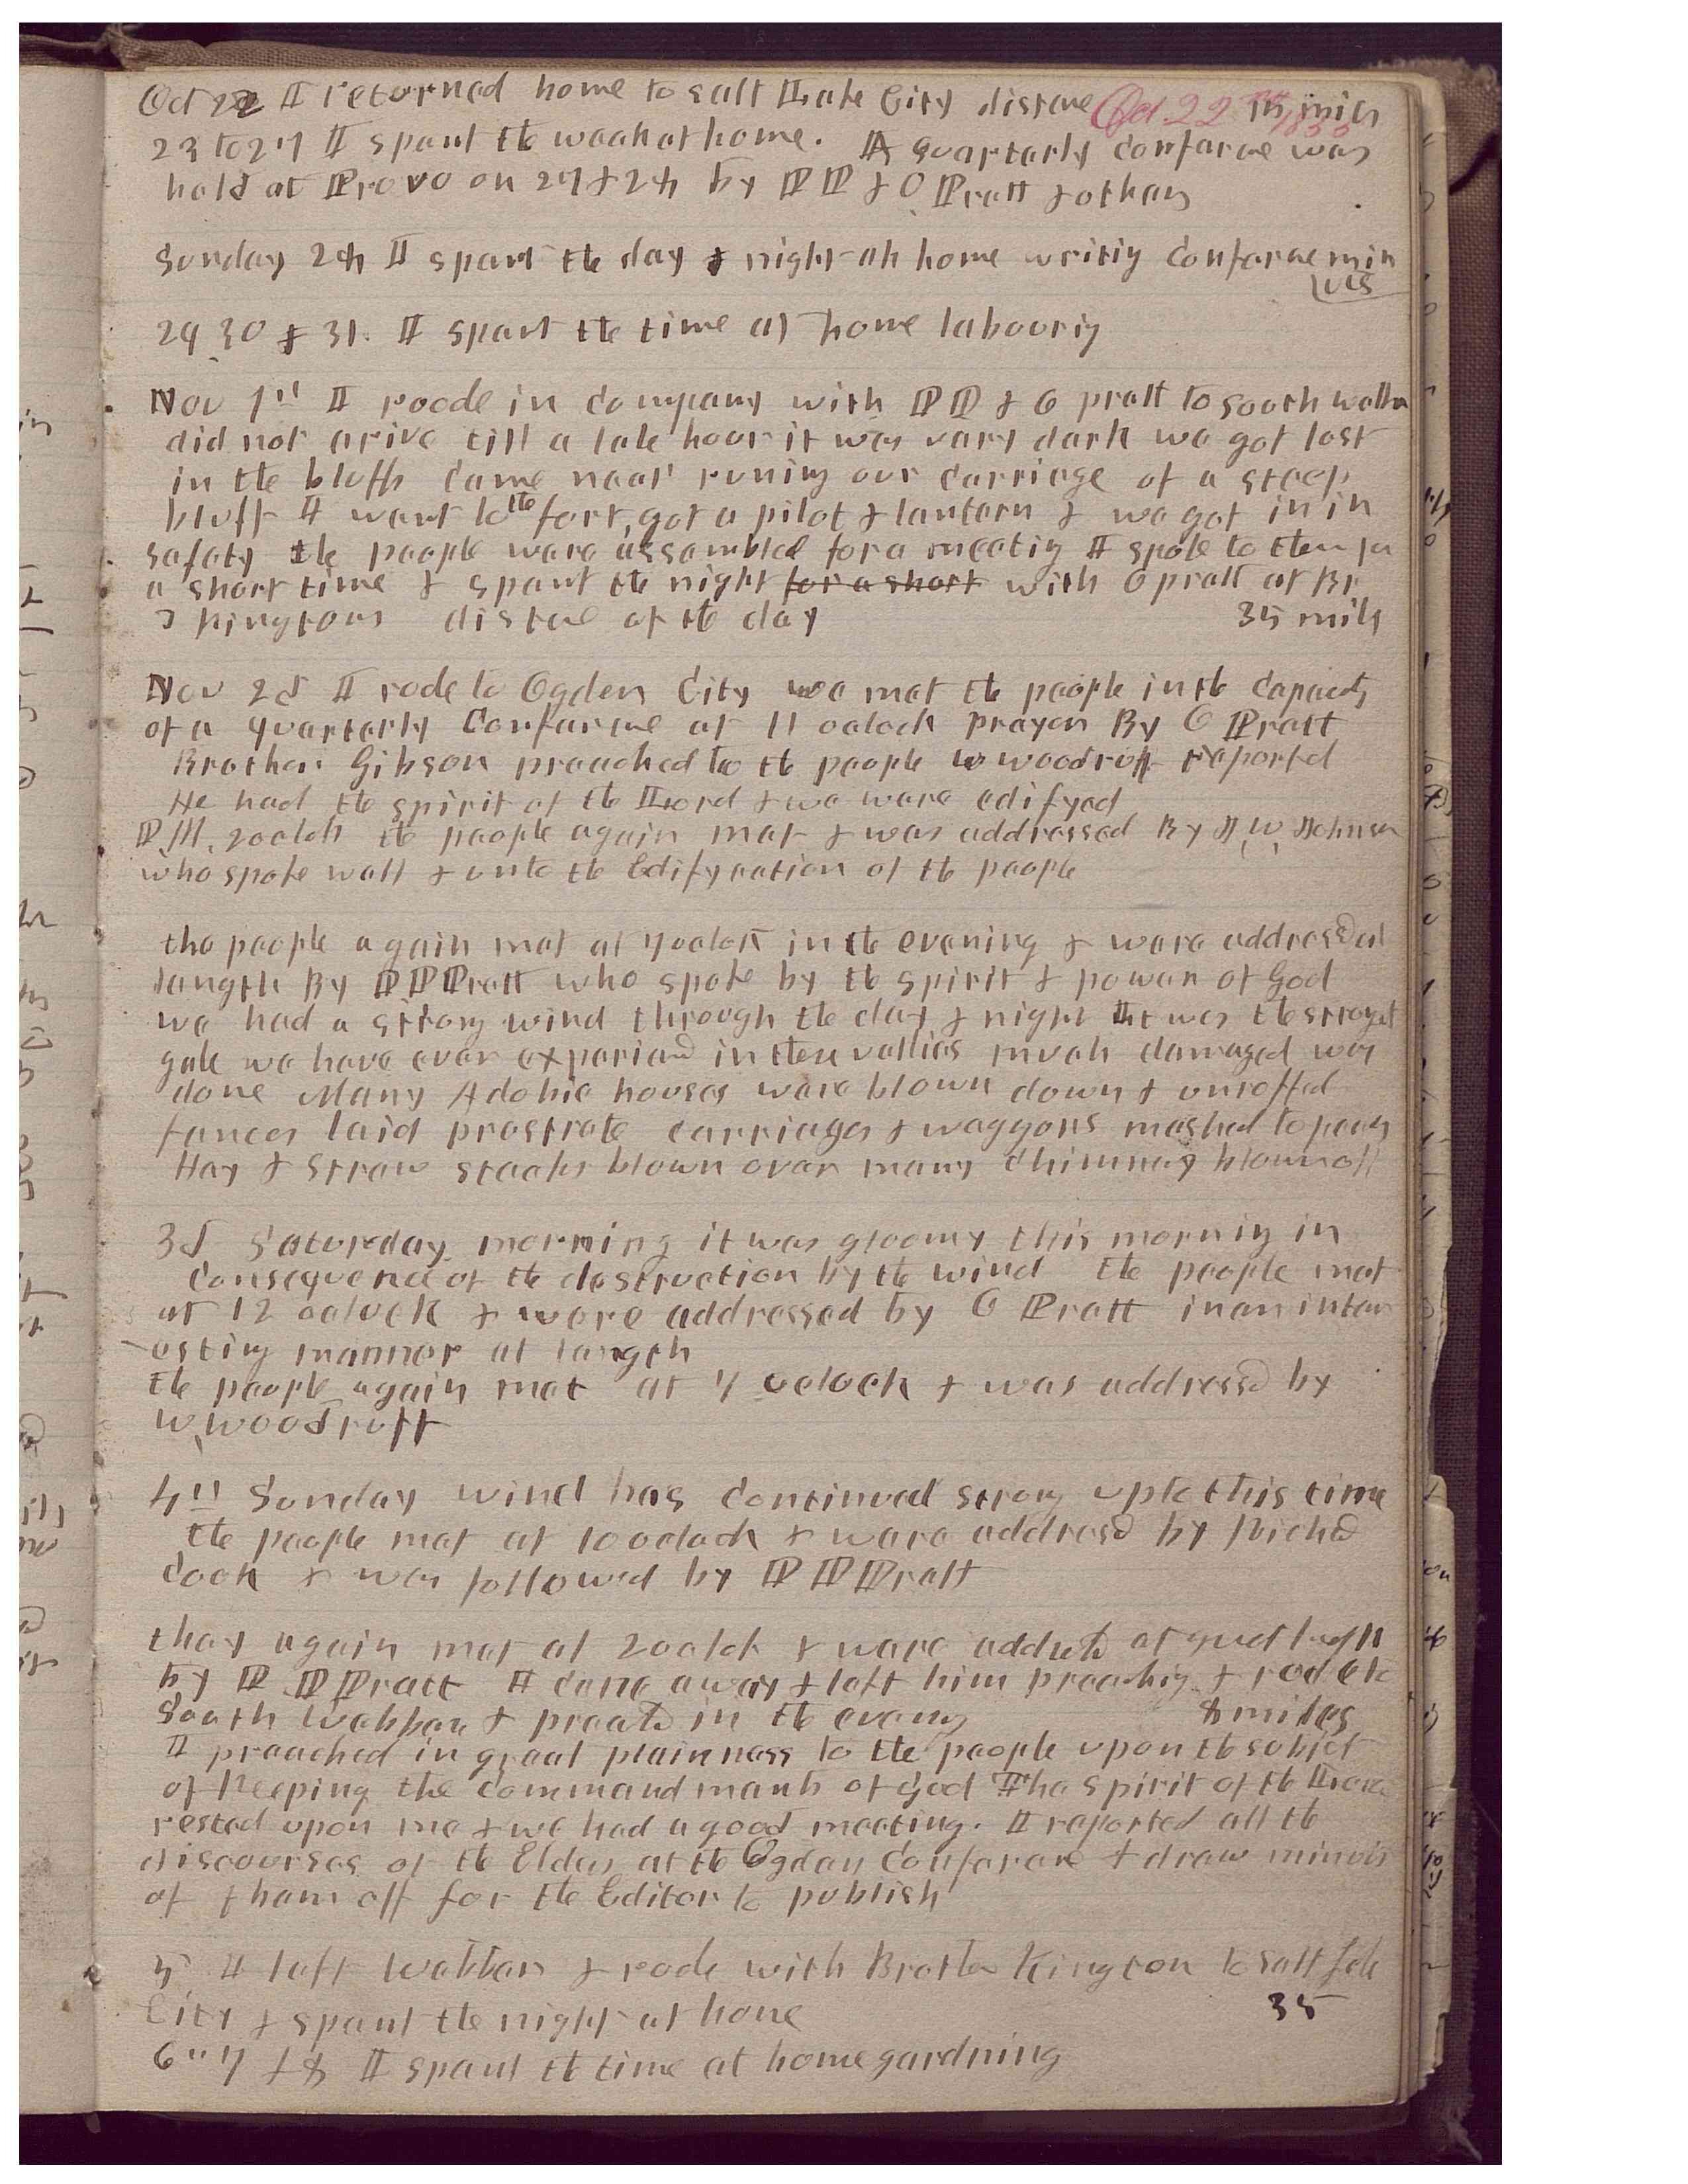 Oct 22 I returned home to salt Lake City distance Oct. 22nd 1855 15 miles
23 to 27 I spent the week at home. A Quarterly Conferne was
held at Provo on 27 & 28 by P P & O Pratt & others
Sunday 28 I spent the day & night at home writig Conferne min
utes
29 30 & 31. I spent the time at home labourig
Nov 1st I roode in Company with P P & O pratt to South webber
did not arive till a late hour it was very dark we got lost
in the bluffs Came near runing our Carriage of a steep
bluff I went to the fort, got a pilot & lantern & we got in in
safety the people were assembled for a meetig I spoke to them for
a short time & spent the night for a short with O pratt at Br
T Kingtons distae of the day 35 mils
Nov 2d I rode to Ogden City we met the people in the Capacity
of a quarterly Conferne at 11 oclock Prayer By O Pratt
Brother Gibson preached to the people W woodruff reported
He had the spirit of the Lord & we were edifyed
P.M. 2 oclok the people again met & was addressed By L, W, Johnson
who spoke well & unto the Edifycation of the people
the people again met at 7 oclok in the evening & were addressed at
length By P P Pratt who spoke by the spirit & power of God
we had a strong wind through the day & night It was the strongest
gale we have ever experiand in these vallies much damaged was
done Many Adobie houses were blown down & unroffed
fences laid prostrate carriages & waggons mashed to peces
Hay & Straw stacks blown over many Chimney blown off
3d Saturday morning it was gloomy this mornig in
Consequence of the destruction by the wind the people met
at 12 oclock & were addressed by O Pratt in an inter
esting manner at length
the people again met at 7 oclock & was addressed by
W, woodruff
4th Sunday wind has Continued strong up to this time
the people met at 10 oclock & were addresd by Richd
Cook & was followed by P P Pratt
they again met at 2 oclok & were addresd at great length
by P P Pratt I came away & left him preachig & rode to
South Webber & preachd in the evenig 8 miles
I preached in great plainness to the people upon the subject
of keeping the commandments of God The spirit of the Lord
rested upon me & we had a good meeting. I reported all the
discourses of the Elders at the Ogden Conferane & drew minuts
of them off for the Editor to publish
5 I left Webber & rode with Brother Kington to Salt Lake
City & spent the night at home 35
6" 7 & 8 I spent the time at home gardning